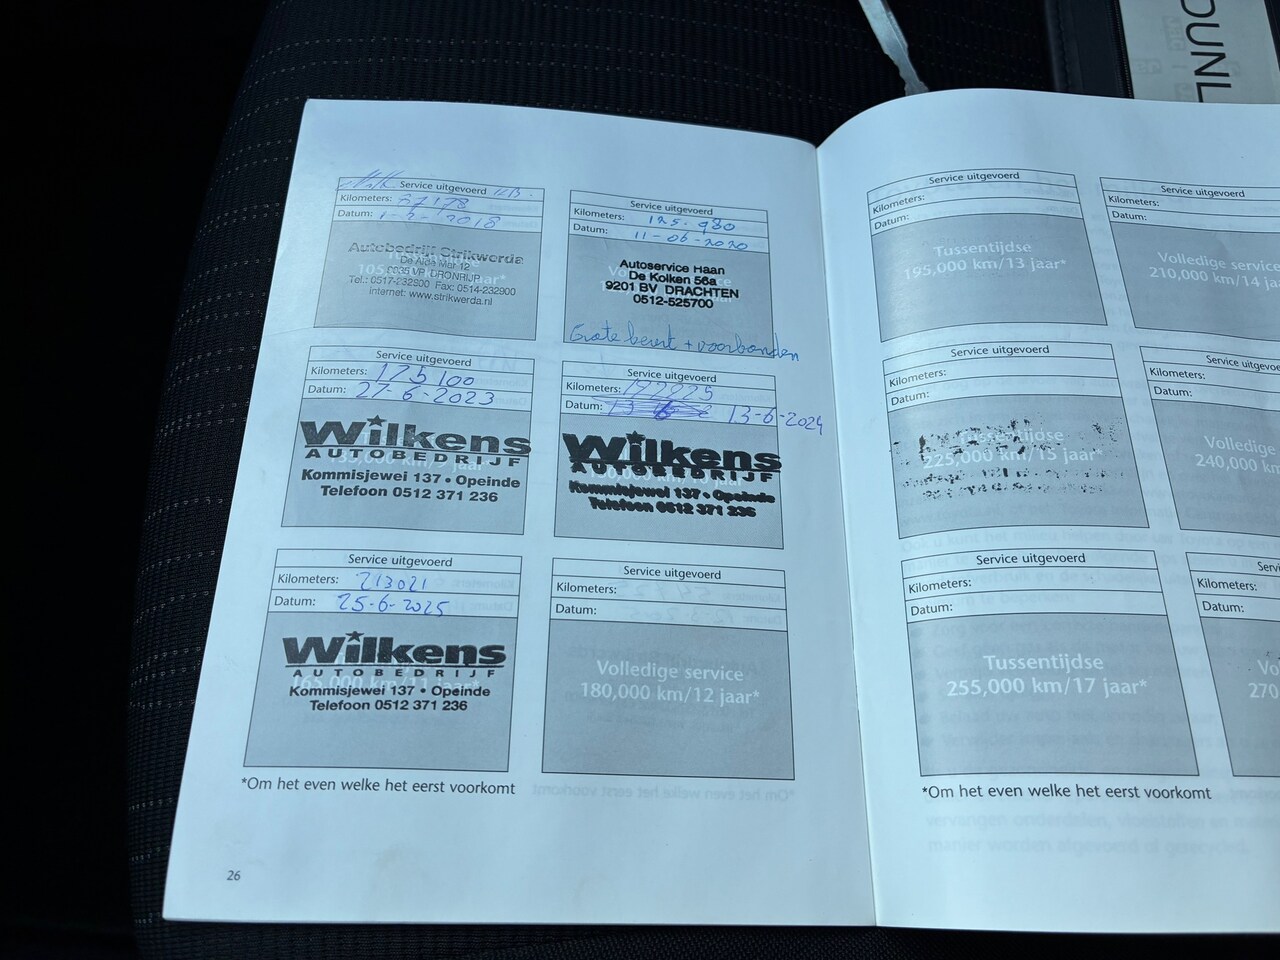 Service uitgevoerd
Kilometers: 87178
Datum: 1-2-2018
Autobedrijf Strikwerda
De Alde Mar 12
9035 VP DRONRIJP
Tel.: 0517-232900 Fax: 0514-232900
internet: www.strikwerda.nl
Service uitgevoerd
Kilometers: 125.980
Datum: 11-06-2020
Autoservice Haan
De Kolken 56a
9201 BV DRACHTEN
0512-525700
Grote beurt + voorbanden
Service uitgevoerd
Kilometers: 175100
Datum: 27-6-2023
Wilkens
AUTOBEDRIJF
Kommisjewei 137 • Opeinde
Telefoon 0512 371 236
Service uitgevoerd
Kilometers: 192225
Datum: 13-6-2024
Wilkens
AUTOBEDRIJF
Kommisjewei 137 • Opeinde
Telefoon 0512 371 236
Service uitgevoerd
Kilometers: 213021
Datum: 25-6-2025
Wilkens
AUTOBEDRIJF
Kommisjewei 137 • Opeinde
Telefoon 0512 371 236
Service uitgevoerd
Kilometers:
Datum:
Volledige service
180,000 km/12 jaar*
*Om het even welke het eerst voorkomt
26
Service uitgevoerd
Kilometers:
Datum:
Tussentijdse
195,000 km/13 jaar*
Service uitgevoerd
Kilometers:
Datum:
Volledige service
210,000 km/14 ja
Service uitgevoerd
Kilometers:
Datum:
Tussentijdse
225,000 km/15 jaar*
Service uitgevoerd
Kilometers:
Datum:
Volledige
240,000 km
Service uitgevoerd
Kilometers:
Datum:
Tussentijdse
255,000 km/17 jaar*
Servi
Kilometers:
Datum:
Vo
270
*Om het even welke het eerst voorkomt
DUNL